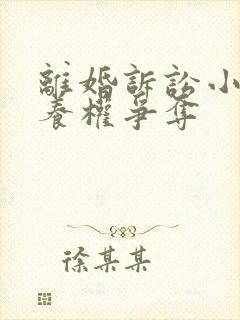 離婚訴訟小
養權爭奪
徐某某